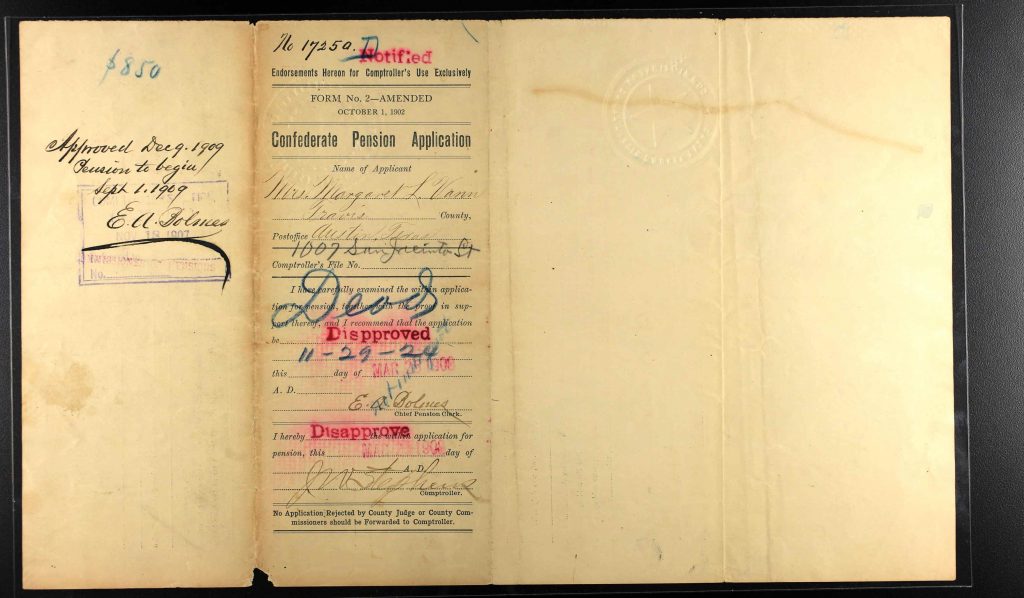 $850
Approved Dec 9. 1909
Pension to begin
Sept 1. 1909
E. A. Bolmes
NOV 18 1907
No.
No 17250.
Notified
Endorsements Hereon for Comptroller's Use Exclusively
FORM No. 2—AMENDED
OCTOBER 1, 1902
Confederate Pension Application
Name of Applicant
Mrs. Margaret L. Vann
Travis County,
Postoffice Austin Texas
1007 San Jacinto St
Comptroller's File No.
I have carefully examined the within applica-
tion for pension, together with the proof in sup-
port thereof, and I recommend that the application
be Disapproved
Dead
11-29-24
this day of MAR 1908
A. D.
E. A. Bolmes
Chief Pension Clerk.
I hereby Disapprove the within application for
pension, this MAR 190 day of
A. D.
J W Stephens
Comptroller.
No Application Rejected by County Judge or County Com-
missioners should be Forwarded to Comptroller.